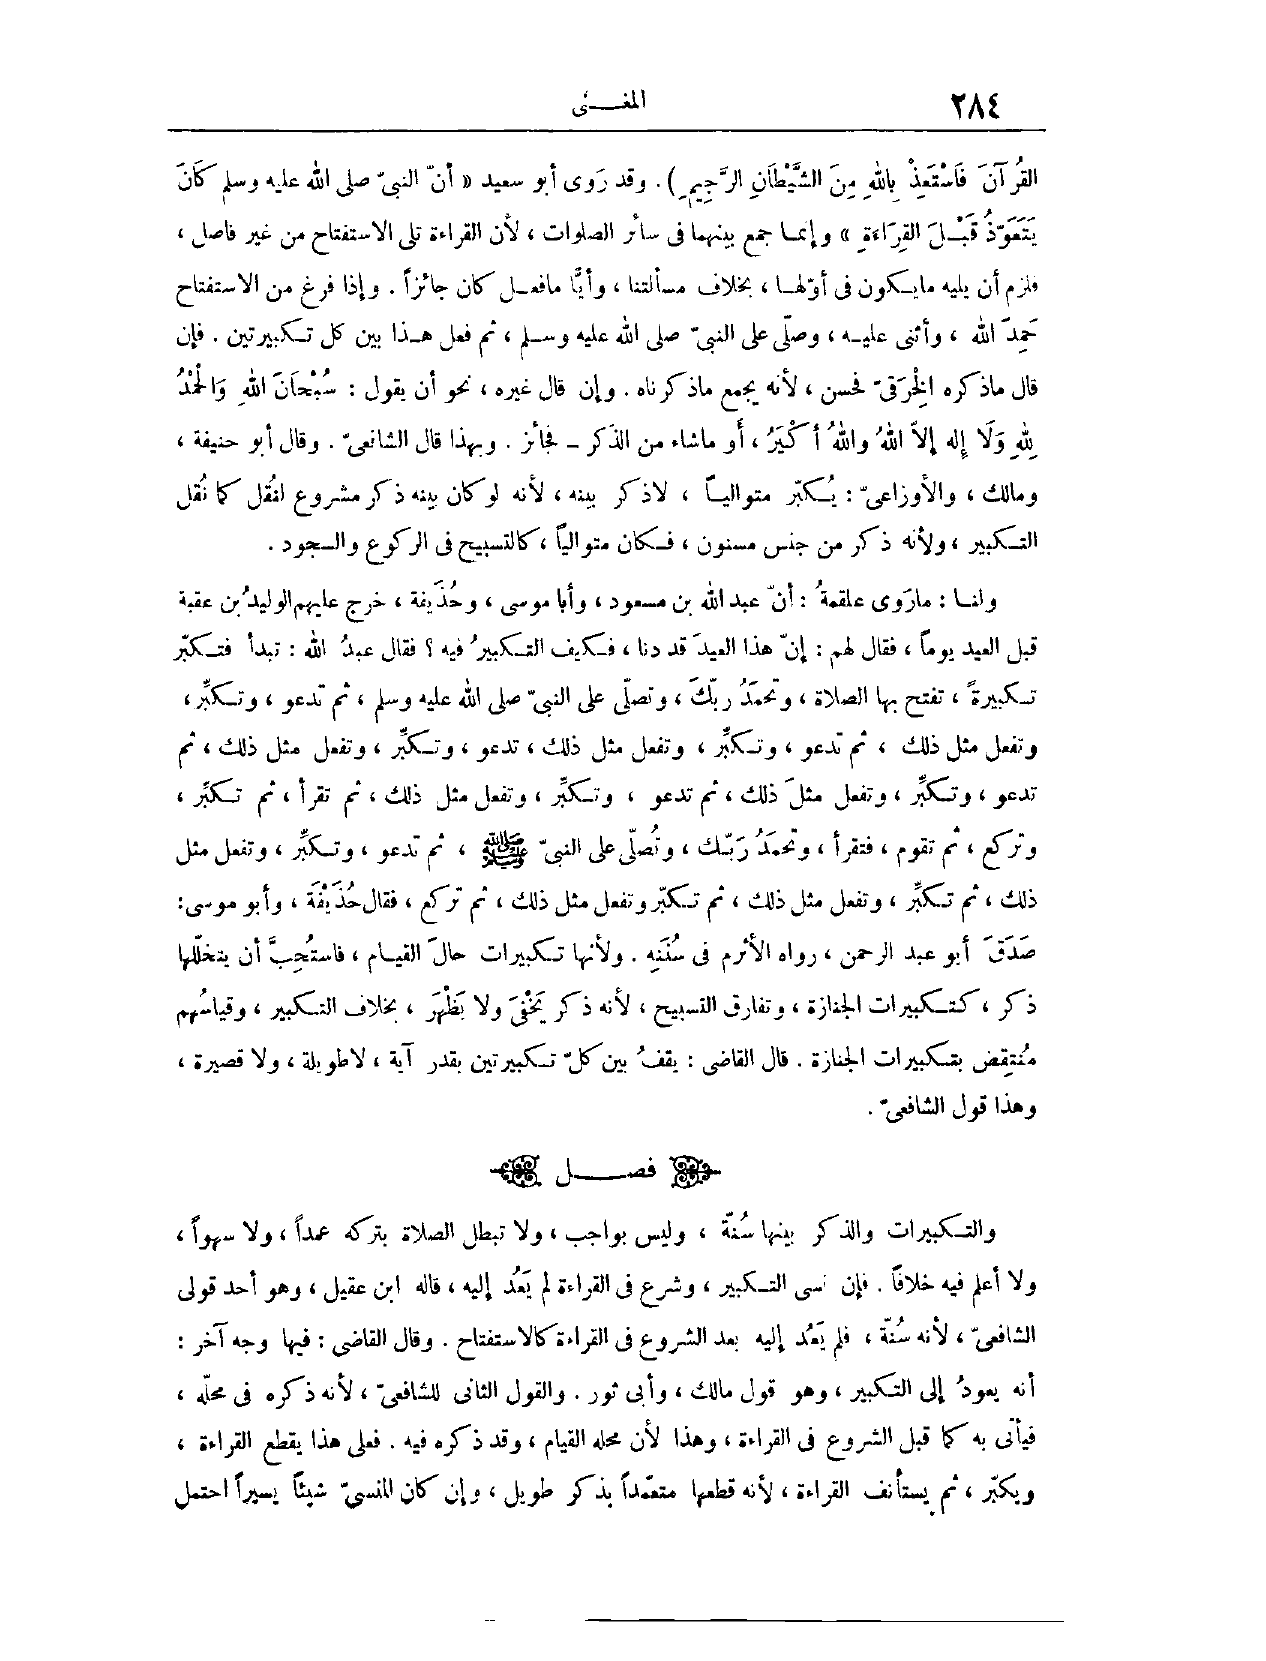 ٢٨٤
المغـــنى
القُرآنَ فَاسْتَعِذْ بِاللهِ مِنَ الشَّيْطَانِ الرَّجِيمِ). وقد رَوى أبو سعيد « أنّ النبىّ صلى الله عليه وسلم كَانَ
يَتَعَوّذُ قَبْـلَ القِرَاءَةِ » وإنمـا جمع بينهما فى سائر الصلوات ، لأن القراءة تلى الاستفتاح من غير فاصل ،
فلزم أن يليه مايـكون فى أوّلهـا ، بخلاف مسألتنا ، وأيًّا مافعـل كان جائزاً . وإذا فرغ من الاستفتاح
حَمِدَ الله ، وأثنى عليـه ، وصلّى على النبىّ صلى الله عليه وسـلم ، ثم فعل هـذا بين كل تـكبيرتين . فإن
قال ماذكره الخِرَقىّ فحسن ، لأنه يجمع ماذكرناه . وإن قال غيره ، نحو أن يقول : سُبْحَانَ اللهِ وَالْحَمْدُ
لِلهِ وَلَا إله إلاّ اللهُ واللهُ أكْبَرُ ، أو ماشاء من الذكر – فجائز . وبهذا قال الشافعىّ . وقال أبو حنيفة ،
ومالك ، والأوزاعىّ : يُـكبّر متواليـاً ، لاذكر بينه ، لأنه لوكان بينه ذكر مشروع لنُقل كما نُقل
التـكبير ، ولأنه ذكر من جنس مسنون ، فـكان متوالياً ، كالتسبيح فى الركوع والسجود .
ولنـا : مارَوى علقمةُ : أنّ عبد الله بن مسعود ، وأبا موسى ، وحُذَيفة ، خرج عليهم الوليدُ بن عقبة
قبل العيد يوماً ، فقال لهم : إنّ هذا العيدَ قد دنا ، فـكيف التـكبيرُ فيه ؟ فقال عبدُ الله : تبدأ فتـكبّر
تـكبيرةً ، تفتح بها الصلاة ، وتحمَدُ ربّكَ ، وتصلّى على النبىّ صلى الله عليه وسلم ، ثم تدعو ، وتـكبِّر ،
وتفعل مثل ذلك ، ثم تدعو ، وتـكبِّر ، وتفعل مثل ذلك ، تدعو ، وتـكبِّر ، وتفعل مثل ذلك ، ثم
تدعو ، وتـكبِّر ، وتفعل مثلَ ذلك ، ثم تدعو ، وتـكبِّر ، وتفعل مثل ذلك ، ثم تقرأ ، ثم تـكبِّر ،
وتركع ، ثم تقوم ، فتقرأ ، وتحمَدُ رَبّـك ، وتُصلّى على النبىّ ﷺ ، ثم تدعو ، وتـكبِّر ، وتفعل مثل
ذلك ، ثم تـكبِّر ، وتفعل مثل ذلك ، ثم تـكبّر وتفعل مثل ذلك ، ثم تركع ، فقال حُذَيْفَة ، وأبو موسى:
صَدَقَ أبو عبد الرحمن ، رواه الأثرم فى سُنَنِه . ولأنها تـكبيرات حالَ القيـام ، فاستُحِبَّ أن يتخلّلها
ذكر ، كتـكبيرات الجنازة ، وتفارق التسبيح ، لأنه ذكر يَخْفَى ولا يَظْهَر ، بخلاف التـكبير ، وقياسُهم
مُنتقِض بتـكبيرات الجنازة . قال القاضى : يقفُ بين كلّ تـكبيرتين بقدر آية ، لاطويلة ، ولا قصيرة ،
وهذا قول الشافعىّ .
فصـــل
والتـكبيرات والذكر بينها سُنّة ، وليس بواجب ، ولا تبطل الصلاة بتركه عمداً ، ولا سهواً ،
ولا أعلم فيه خلافاً . فإن نسى التـكبير ، وشرع فى القراءة لم يَعُد إليه ، قاله ابن عقيل ، وهو أحد قولى
الشافعىّ ، لأنه سُنّة ، فلم يَعُد إليه بعد الشروع فى القراءة كالاستفتاح . وقال القاضى : فيها وجه آخر :
أنه يعودُ إلى التـكبير ، وهو قول مالك ، وأبى ثور . والقول الثانى للشافعىّ ، لأنه ذكره فى محلّه ،
فيأتى به كما قبل الشروع فى القراءة ، وهذا لأن محله القيام ، وقد ذكره فيه . فعلى هذا يقطع القراءة ،
ويكبّر ، ثم يستأنف القراءة ، لأنه قطعها متعمّداً بذكر طويل ، وإن كان المنسىّ شيئاً يسيراً احتمل